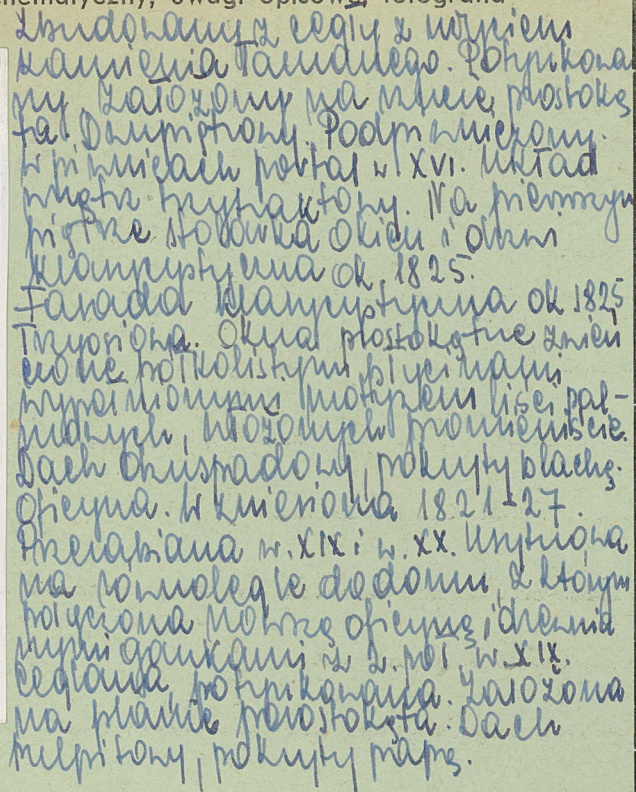 schematyczny, uwagi opisowe, fotografia
Zbudowany z cegły z użyciem
kamienia łamanego. Potynkowa
ny. Założony na rzucie prostoką
ta. Dwupiętrowy. Podpiwniczony.
W piwnicach portal w XVI. Układ
wnętrz trzytraktowy. Na pierwszym
piętrze stolarka okien i drzwi
klasycystyczna ok. 1825.
Fasada klasycystyczna ok 1825
Trzyosiowa. Okna prostokątne zwień
czone półkolistymi płycinami
wypełnionymi motywem liści pal-
mowych, ułożonych promieniście.
Dach dwuspadowy, pokryty blachą.
Oficyna. Wzniesiona 1821-27.
Przerabiana w. XIX i w. XX. Usytuowa
na równolegle do domu, z którym
połączona nowszą oficyną i drewnia
nymi gankami z 2. poł. w. XIX.
Ceglana, potynkowana. Założona
na planie prorostokąta. Dach
pulpitowy, pokryty papą.